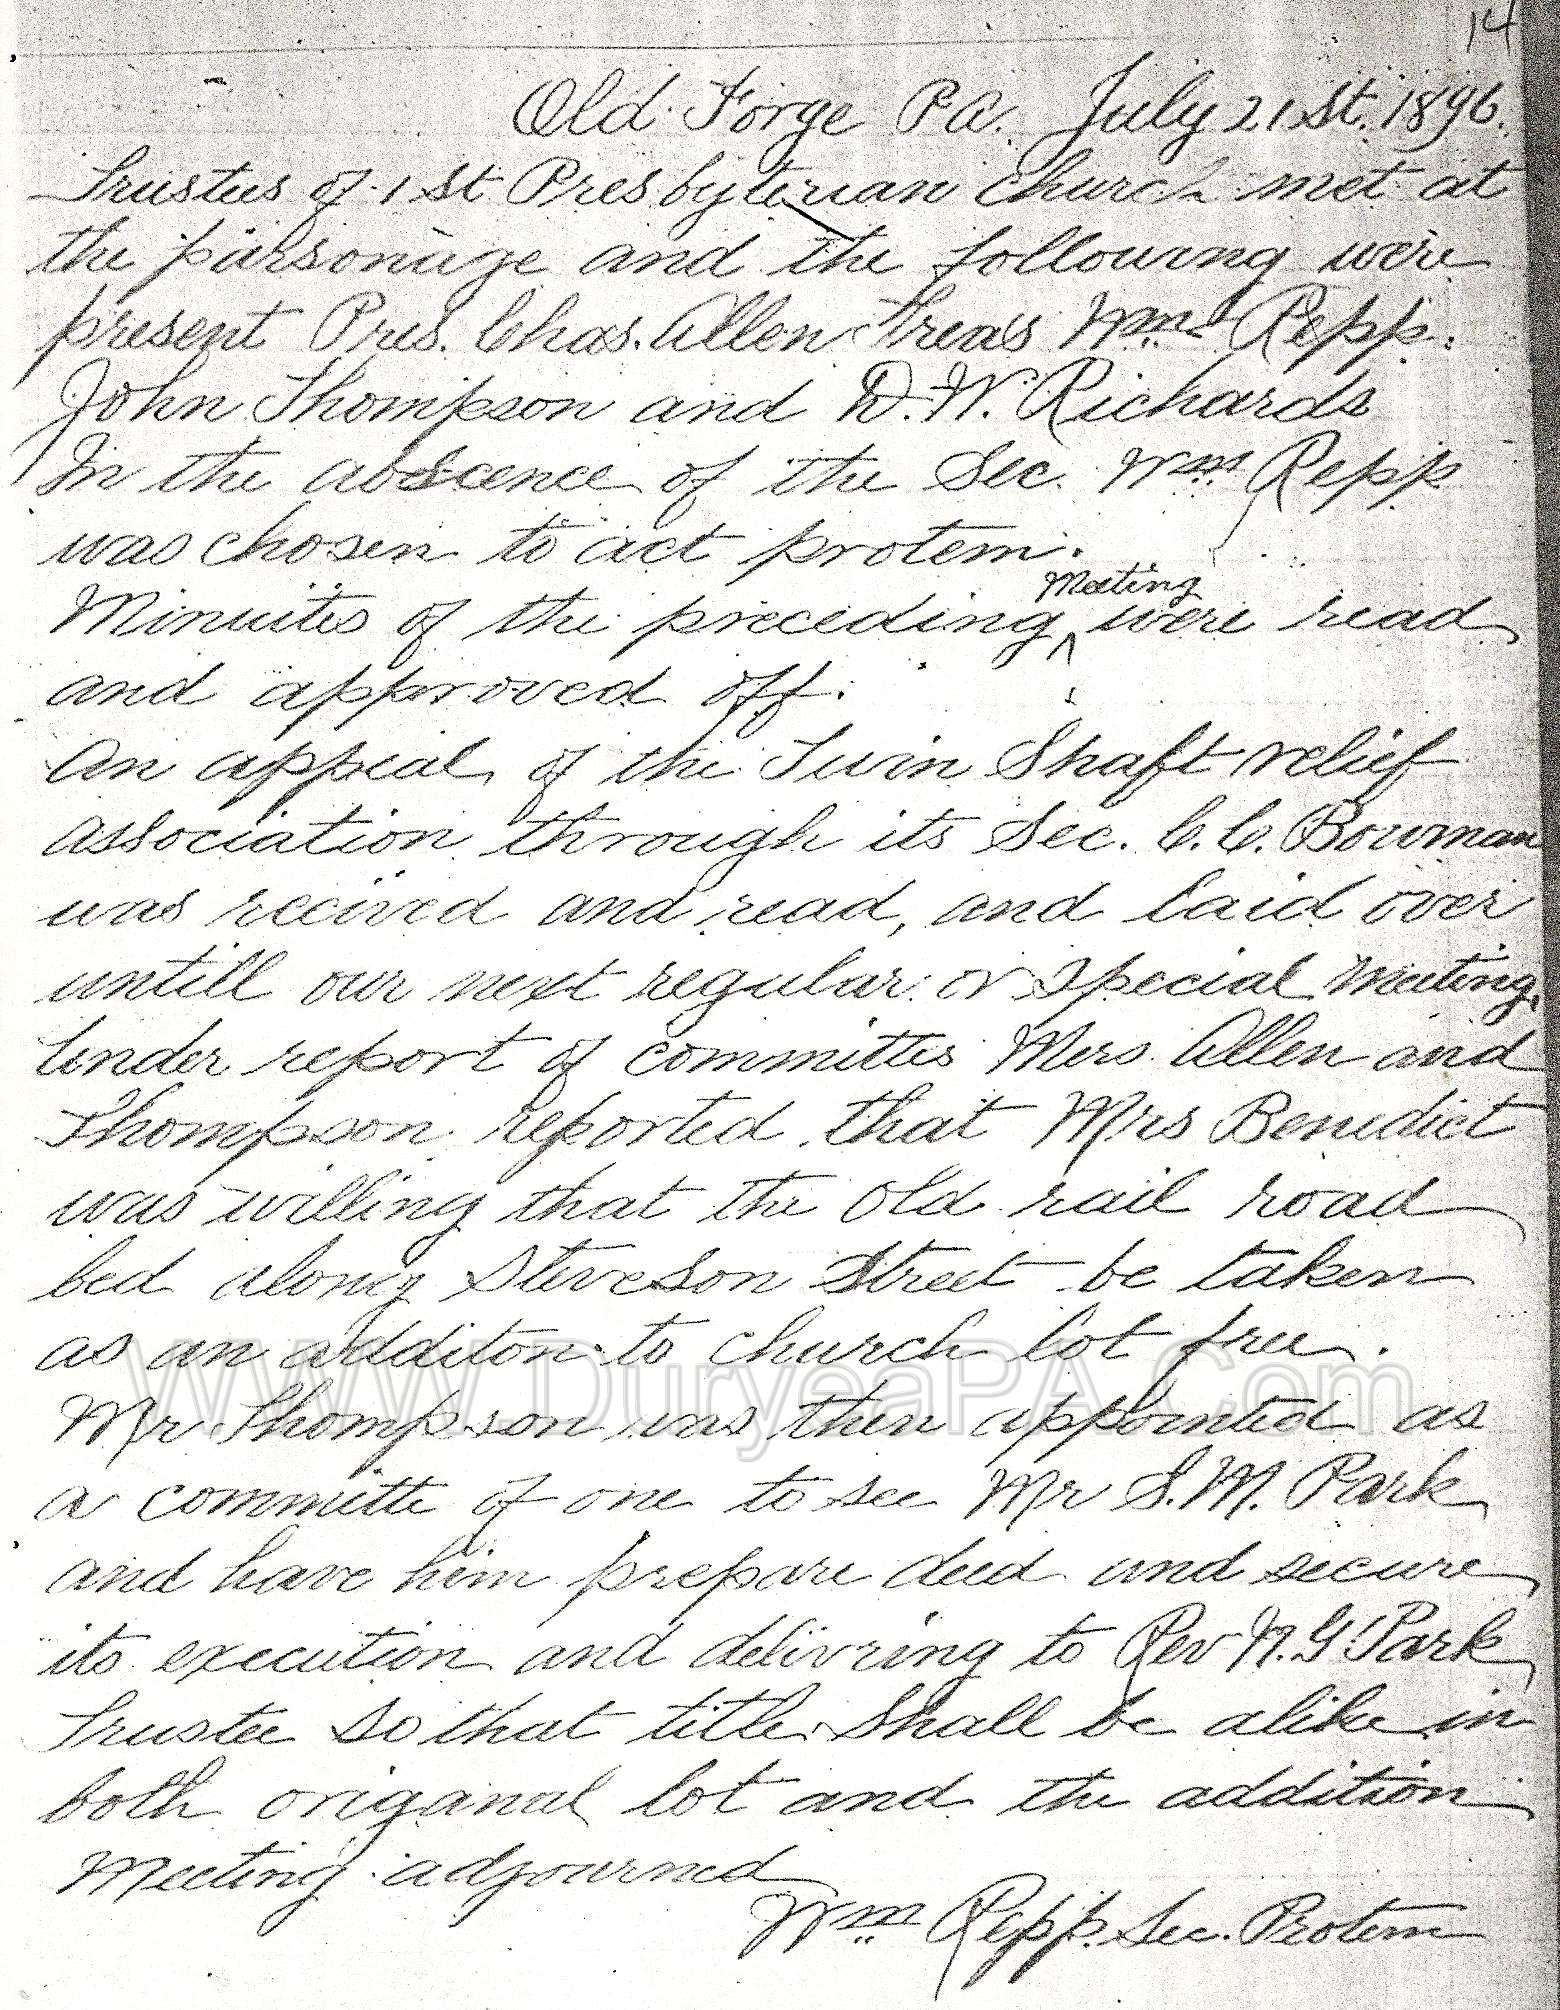 14
Old Forge Pa. July 21st. 1896.
Trustees of 1st Presbyterian church met at
the parsonage and the following were
present Pres. Chas. Allen Treas Wm Repp.
John Thompson and D. W. Richards
In the abscence of the Sec. Wm Repp
was chosen to act protem.
Meeting
Minuites of the preceding ^ were read
and approved off.
An appeal of the Twin Shaft relief
association through its Sec. C. C. Bowman
was recived and read, and laid over
untill our next regular or special Meeting.
Under report of committes Mers. Allen and
Thompson reported that Mrs Benedict
was willing that the old rail road
bed along Steveson Street be taken
as an additon to church lot free.
WWW.DuryeaPA.Com
Mr Thompson was then appointed as
a committe of one to see Mr S. M. Park
and have him prepare deed and secure
its execution and delivring to Rev N. G. Park
Trustee so that title shall be alike in
both origanal lot and the addition
Meeting adjourned
Wm Repp. Sec. Protem